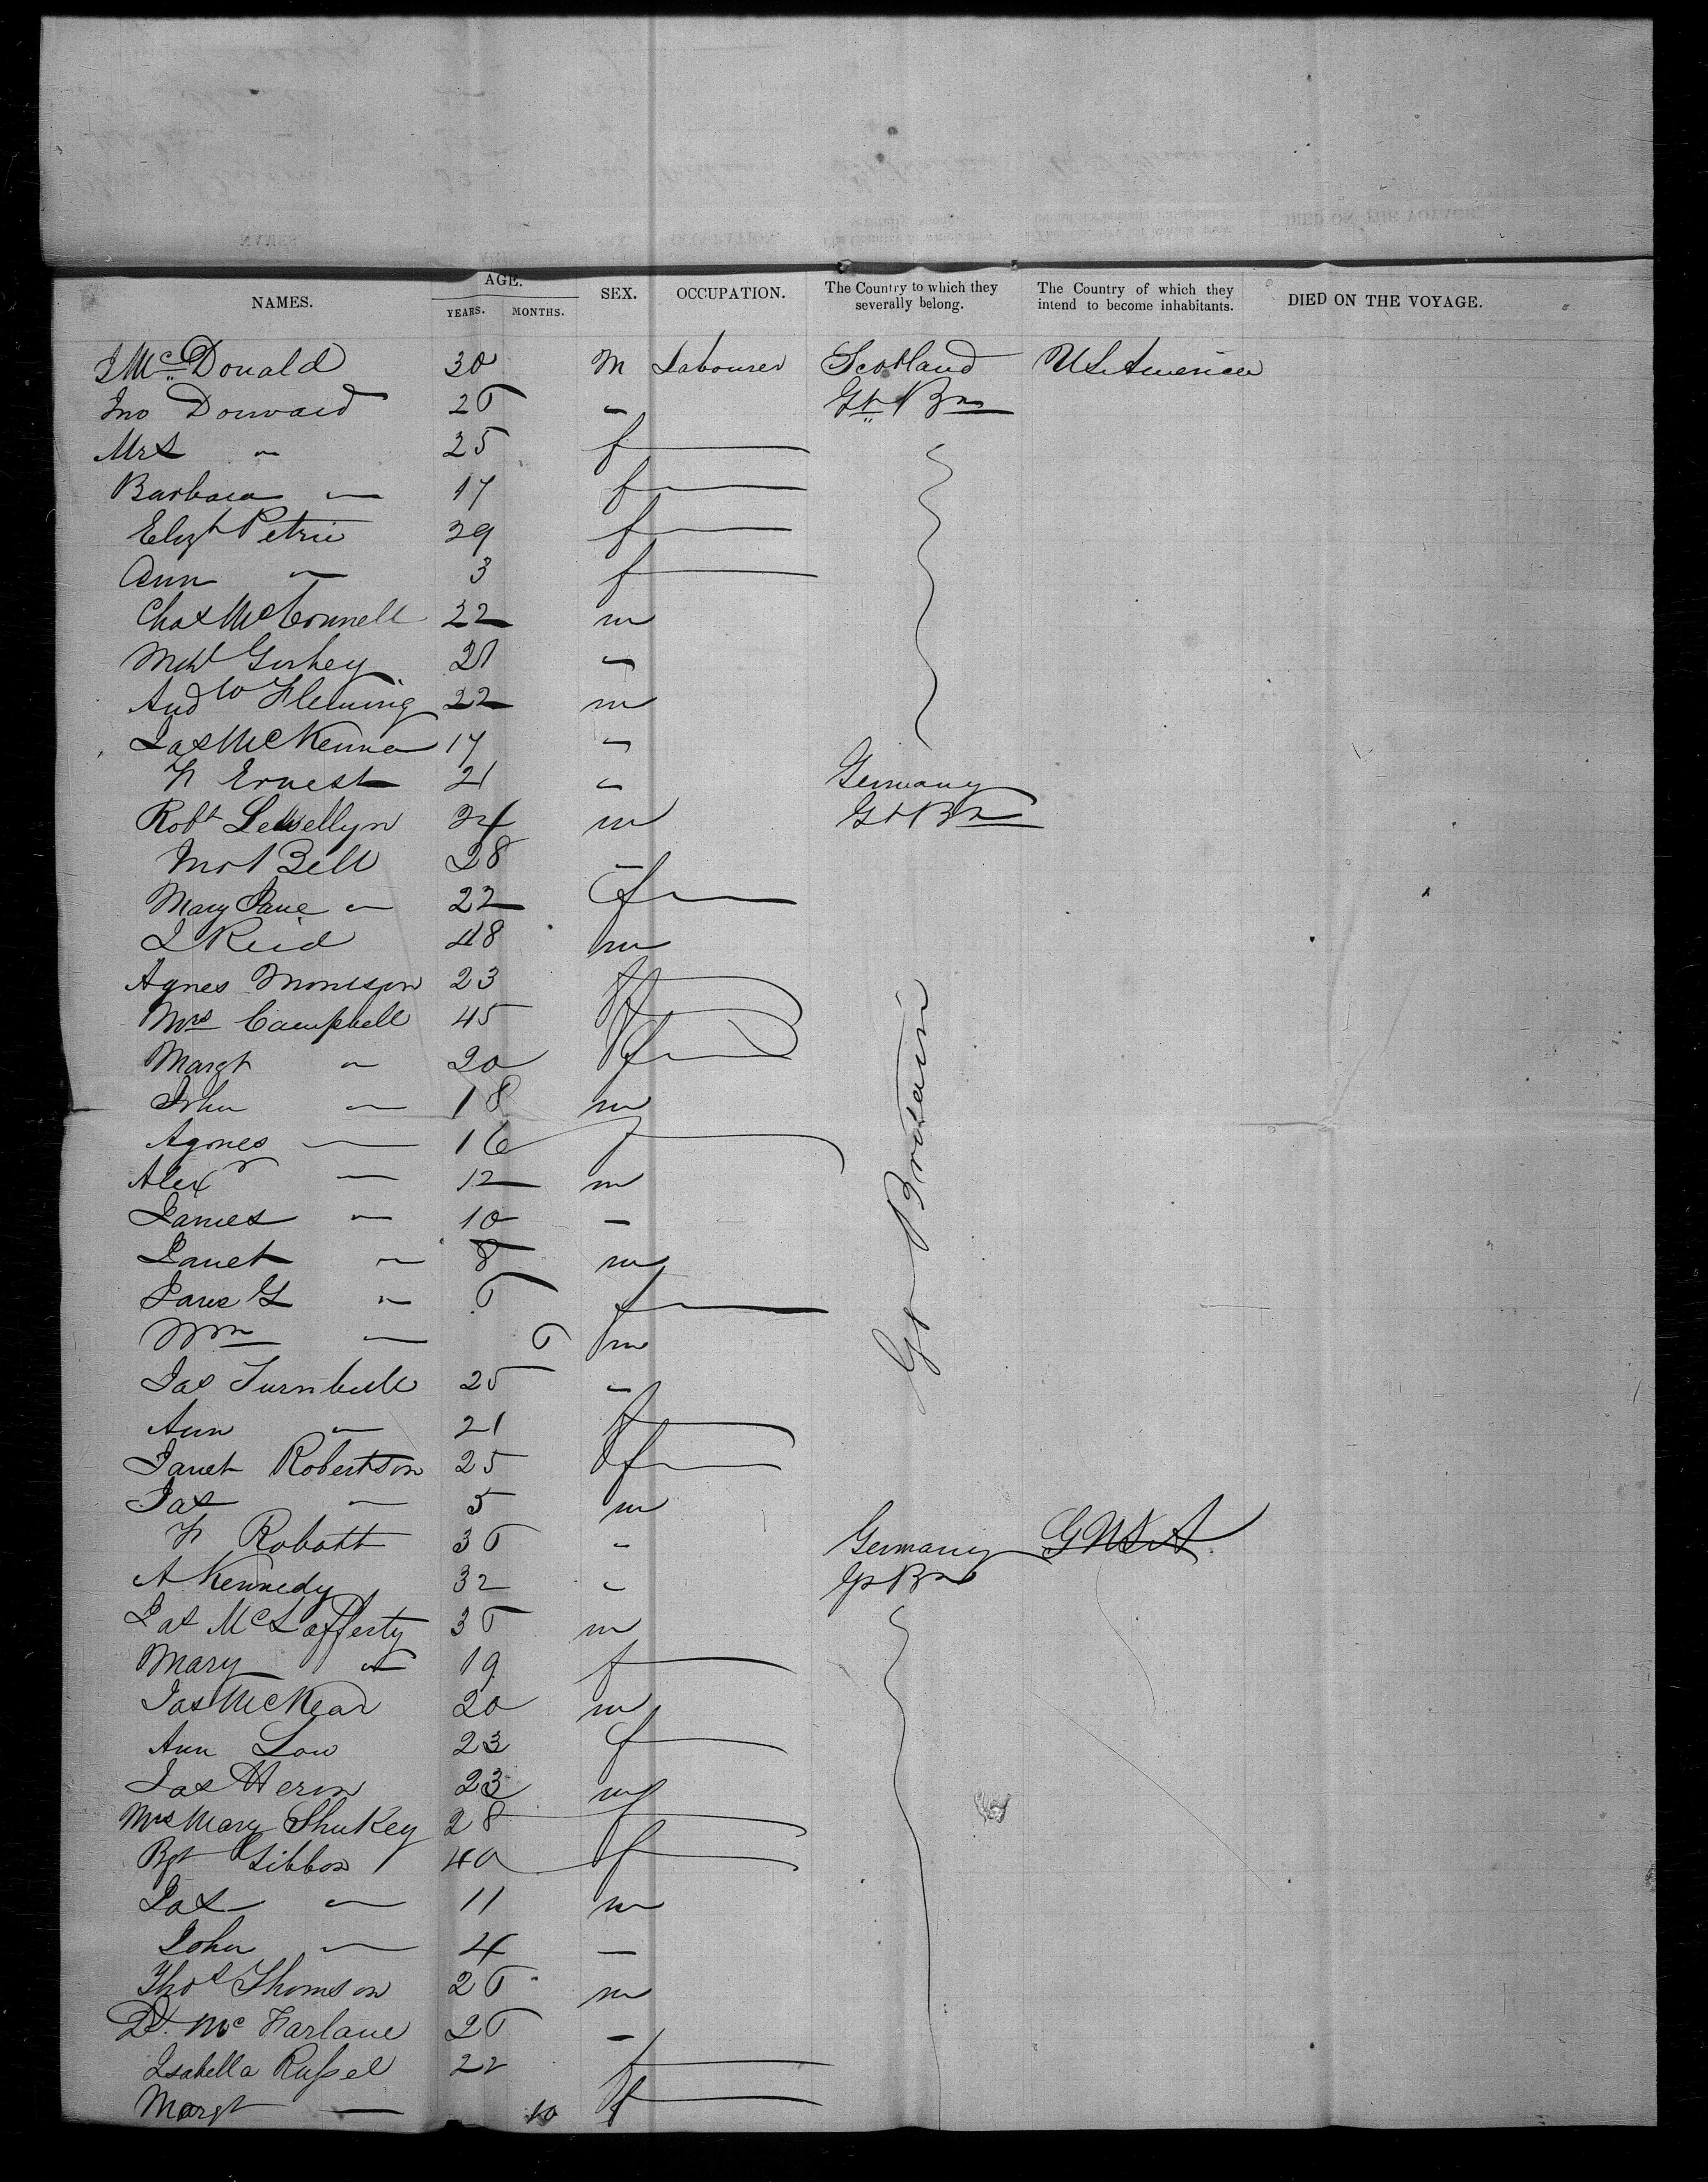 NAMES. AGE. YEARS. MONTHS. SEX. OCCUPATION. The Country to which they severally belong. The Country of which they intend to become inhabitants. DIED ON THE VOYAGE.
J McDonald 30 M Labourer Scotland U S America
Jno Dorward 25 " Gt Bn
Mrs " 25 f
Barbara " 17 f
Elizt Petrie 39 f
Ann " 3 f
Chas McConnell 22 m
Mchl 21 "
Andw Fleming 22 m
Jas McKenna 17 "
H Ernest 21 " Germany
Robt Lewellyn 24 m Gt Bn
Jno Bell 28 "
Mary Jane " 22 f
J Reid 48 m
Agnes Morrison 23 f
Mrs Campbell 45 f
Margt " 20 f
John " 18 m
Agnes " 16 f
Alexr " 12 m
James " 10 "
Janet " 8 m
Jane G " 5 f
Wm " 5 m
Gt Britain
Jas Turnbull 25 "
Ann " 21 f
Janet Robertson 25 f
Jas " 5 m
H Robott 35 " Germany
A Kennedy 32 " Gt Bn
Jas McLafferty 35 m
Mary " 19 f
Jas 20 m
Ann Low 23 f
Jas Heron 23 m
Mrs Mary 28 f
Bgt Gibbon 40 f
Jas " 11 m
John " 4 "
Thos Thomson 25 m
D. McFarlane 25 "
Isabella Russel 22 f
Margt " 10 f